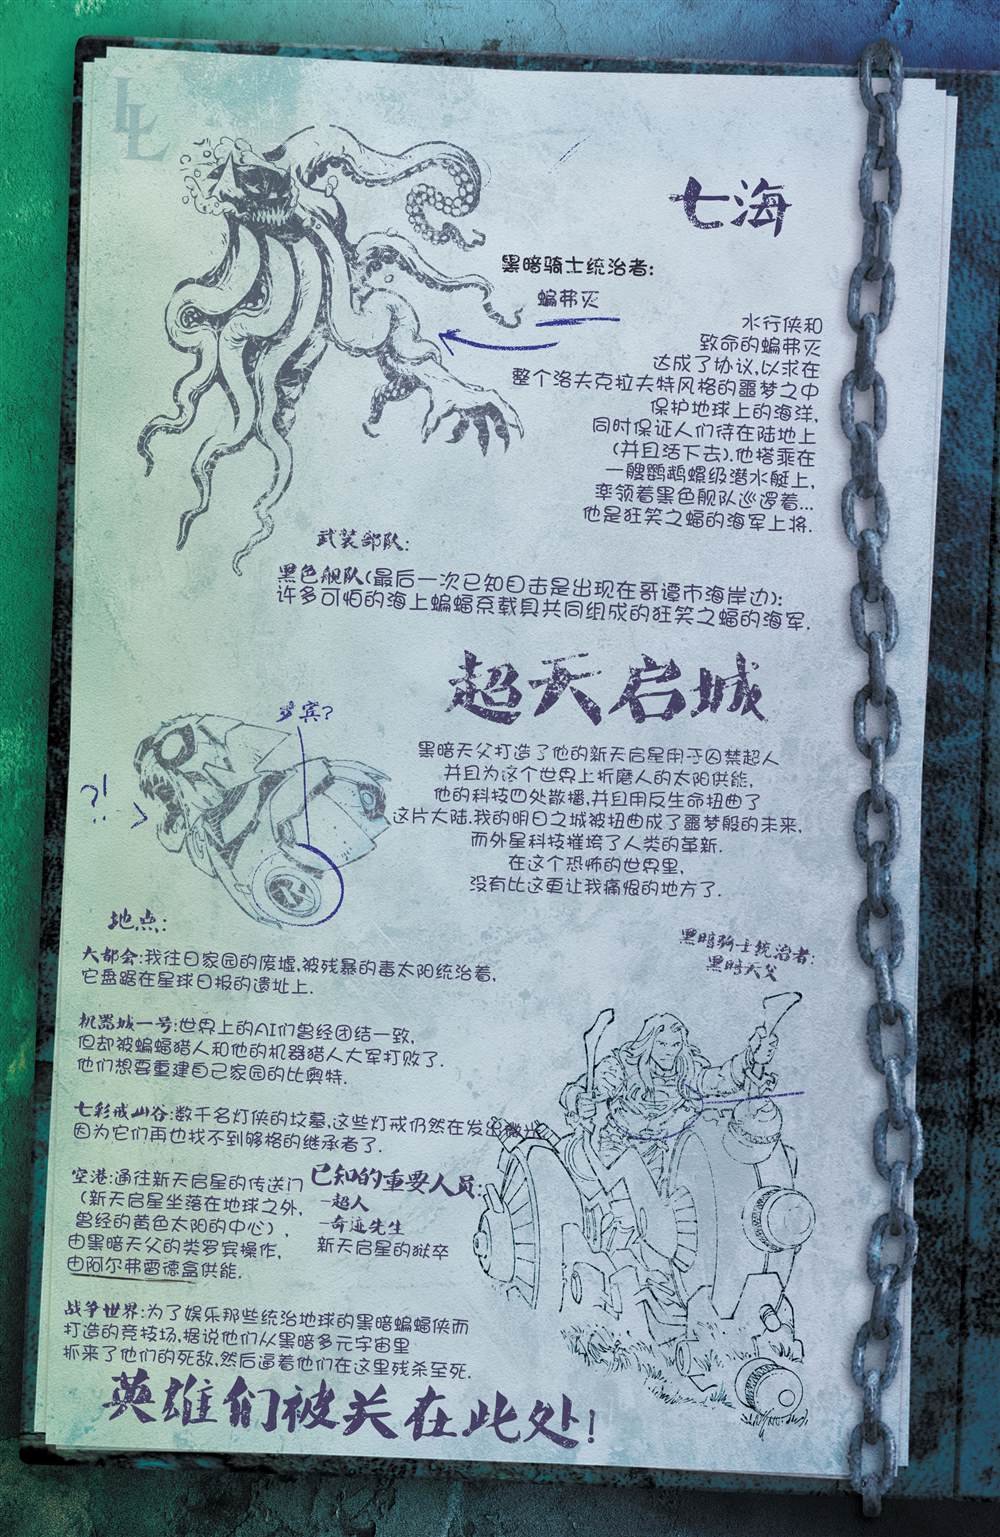 LL
七海
黑暗骑士统治者:
蝙弗灭
水行侠和
致命的蝙弗灭
达成了协议,以求在
整个洛夫克拉夫特风格的噩梦之中
保护地球上的海洋,
同时保证人们待在陆地上
(并且活下去).他搭乘在
一艘鹦鹉螺级潜水艇上,
率领着黑色舰队巡逻着...
他是狂笑之蝠的海军上将.
武装部队:
黑色舰队(最后一次已知目击是出现在哥谭市海岸边):
许多可怕的海上蝙蝠系载具共同组成的狂笑之蝠的海军.
超天启城
罗宾?
?!
黑暗天父打造了他的新天启星用于囚禁超人
并且为这个世界上折磨人的太阳供能,
他的科技四处散播,并且用反生命扭曲了
这片大陆.我的明日之城被扭曲成了噩梦般的未来,
而外星科技摧垮了人类的革新.
在这个恐怖的世界里,
没有比这更让我痛恨的地方了.
黑暗骑士统治者:
黑暗天父
地点:
大都会:我往日家园的废墟,被残暴的毒太阳统治着,
它盘踞在星球日报的遗址上.
机器城一号:世界上的AI们曾经团结一致,
但却被蝙蝠猎人和他的机器猎人大军打败了.
他们想要重建自己家园的比奥特.
七彩戒山谷:数千名灯侠的坟墓,这些灯戒仍然在发出微光
因为它们再也找不到够格的继承者了.
空港:通往新天启星的传送门
(新天启星坐落在地球之外,
曾经的黄色太阳的中心),
由黑暗天父的类罗宾操作,
由阿尔弗雷德盒供能.
已知的重要人员:
-超人
-奇迹先生
新天启星的狱卒
战争世界:为了娱乐那些统治地球的黑暗蝙蝠侠而
打造的竞技场,据说他们从黑暗多元宇宙里
抓来了他们的死敌,然后逼着他们在这里残杀至死.
英雄们被关在此处!